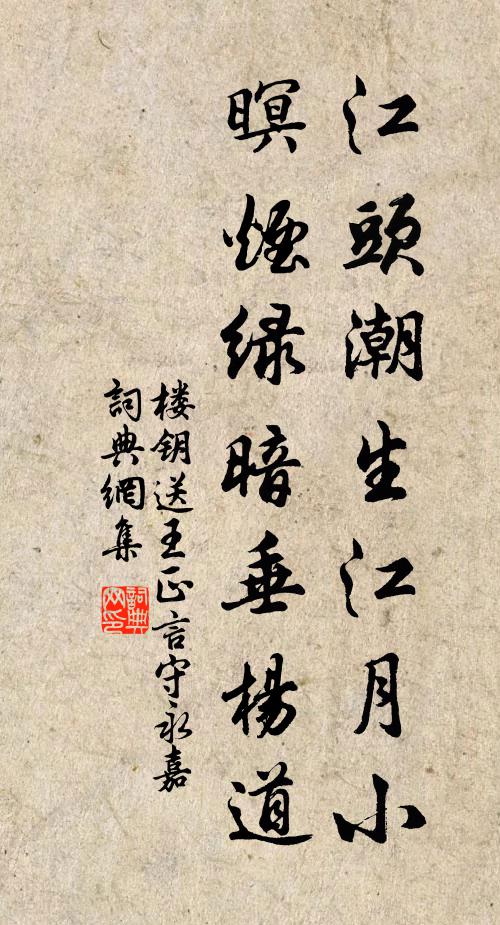 江頭潮生江月小
暝煙緑暗垂楊道
楼钥送王正言守永嘉
詞典網集
詞典网印